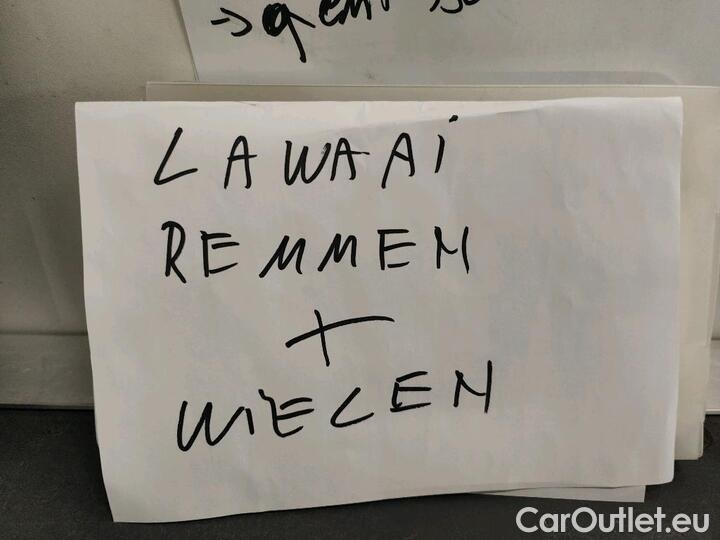 LAWAAi
REMMEN
+
WIELEN
CarOutlet.eu